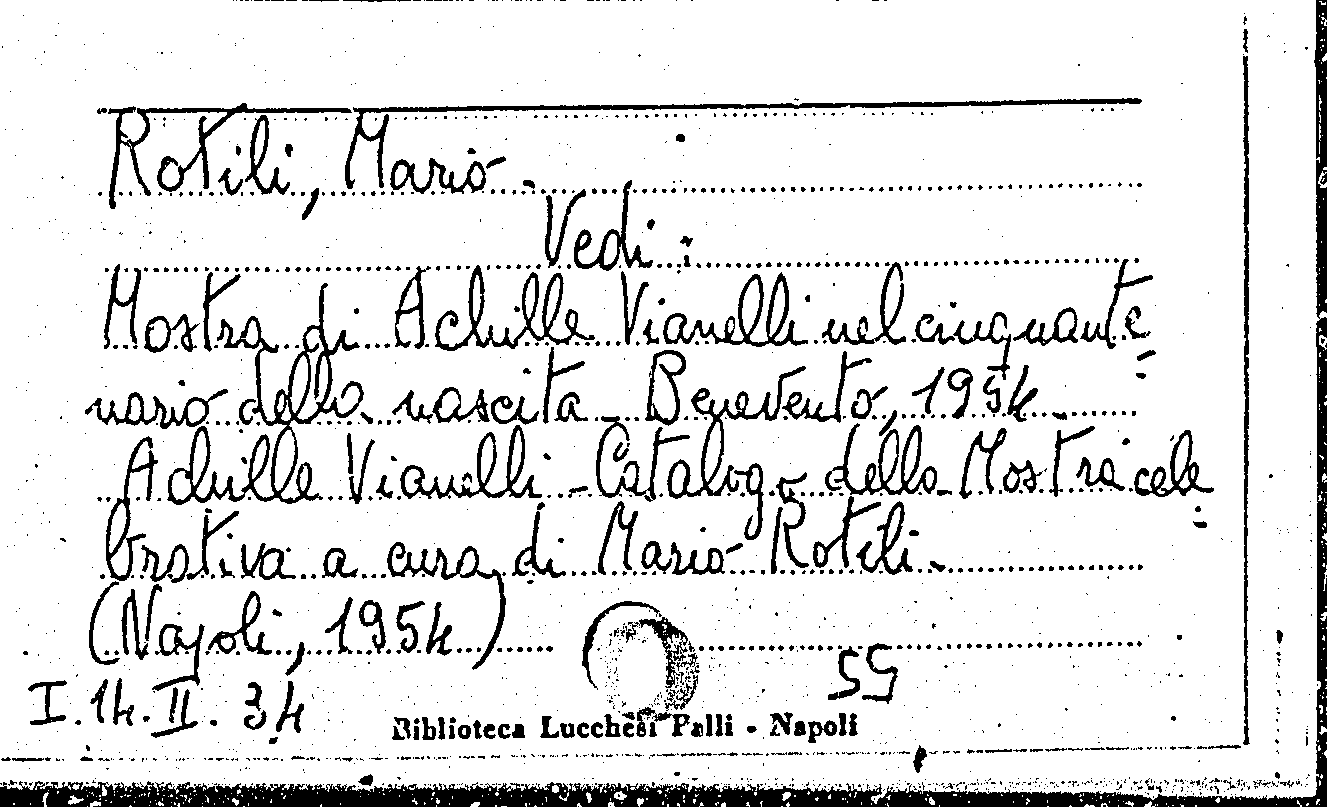 Rotili, Mario.
Vedi:
Mostra di Achille Vianelli nel cinquante=
nario della nascita - Benevento, 1954.
Achille Vianelli - Catalogo della Mostra cele=
brativa a cura di Mario Rotili.
(Napoli, 1954)
I.14.II.34
Biblioteca Lucchesi Palli - Napoli